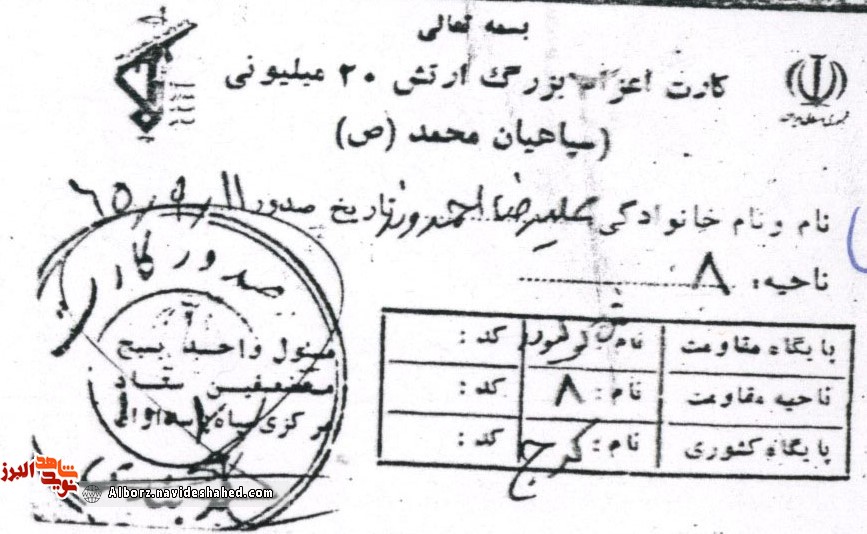 بسمه تعالی
کارت اعزام بزرگ ارتش ۲۰ میلیونی
(سپاهیان محمد (ص)
نام و نام خانوادگی علیرضا تاریخ صدور ۶۵/۹/۱۱
ناحیه: ۸
پایگاه مقاومت نام: کد:
ناحیه مقاومت نام: ۸ کد:
پایگاه کشوری نام: کرج کد:
صدور کارت
مسئول واحد بسیج
مستضعفین ستاد
مرکزی سپاه پاسداران
جمهوری اسلامی ایران
شاهد
نوید البرز
Alborz.navideshahed.com